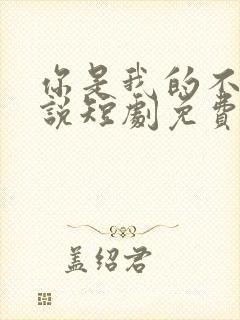 你是我的不
說短劇免費
盖绍君